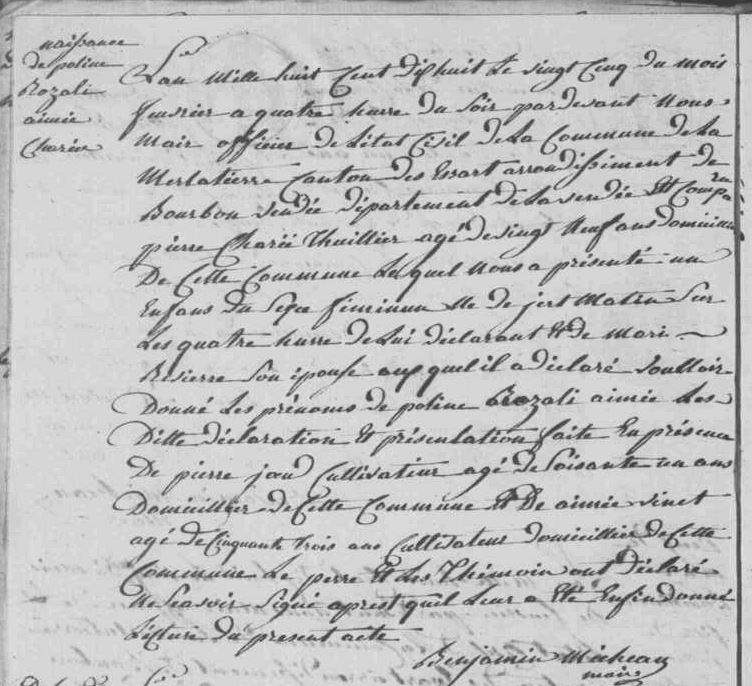 naissance
de poline
Rozali
aimée
Chariée
L'an mille huit Cent dixhuit Le vingt Cinq du mois
fevrier a quatre heure du Soir pardevant nous
Mair officier de Létat Civil de La Commune de La
Merlatierre Canton des Essart arrondissiment de
Bourbon vendée département de La vendée Et Comparu
pierre Chariée Thuillier agé de vingt neuf ans domicillié
De Cette Commune Lequel nous a présenté un
Enfans du Sexe fiminun né de jert Matin Sur
Les quatre heure de Lui déclarant Et de Mari
Resierre Son épouse auxquel il a déclaré Voulloir
Donné Les prénoms de poline Rozali aimée Les
Ditte déclaration Et présentation faite En présence
De pierre jaud Cultivateur agé de Soisante un ans
Domicillier de Cette Commune Et De aimée vinet
agé de Cinquante trois ans Cultivateur domicillier de Cette
Commune Le perre Et Les Thémoin ont déclaré
Ne Savoir Signé aprest quel Leur a Eté Enfin donné
Lecture du present acte
Benjamin Micheau
maire